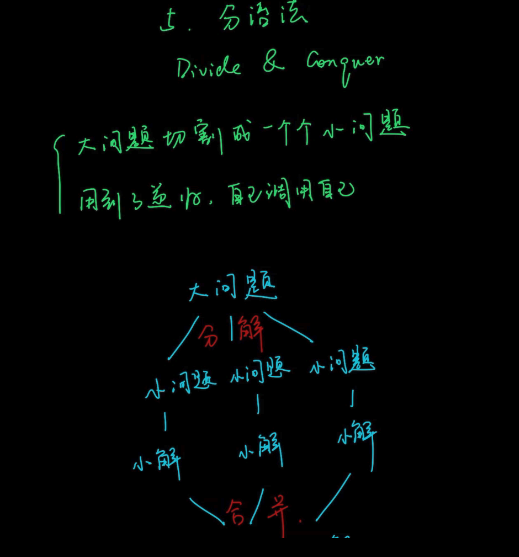 5. 分治法
Divide & Conquer
大问题切割成一个个小问题
用到了递归，自己调用自己
大问题
分解
小问题 小问题 小问题
小解 小解 小解
合并.